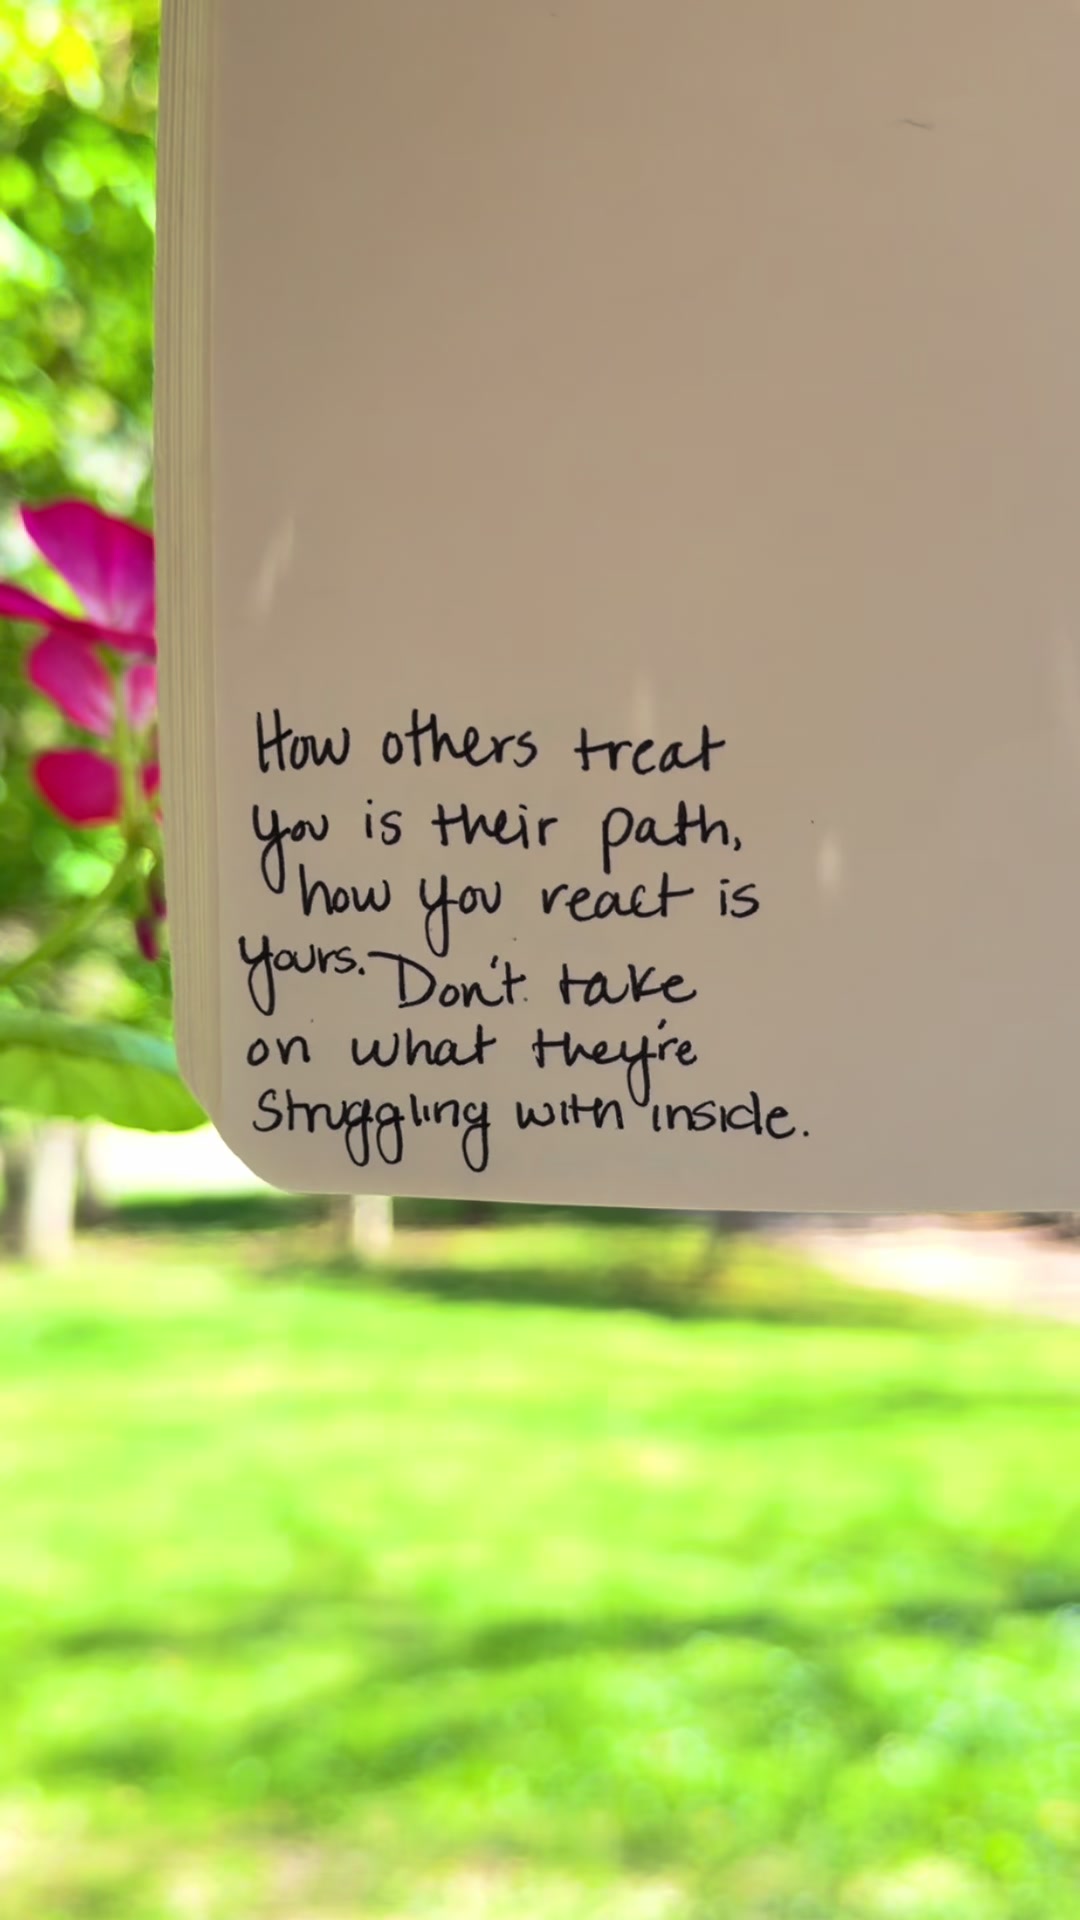 How others treat
you is their path,
how you react is
yours. Don't take
on what they're
struggling with inside.